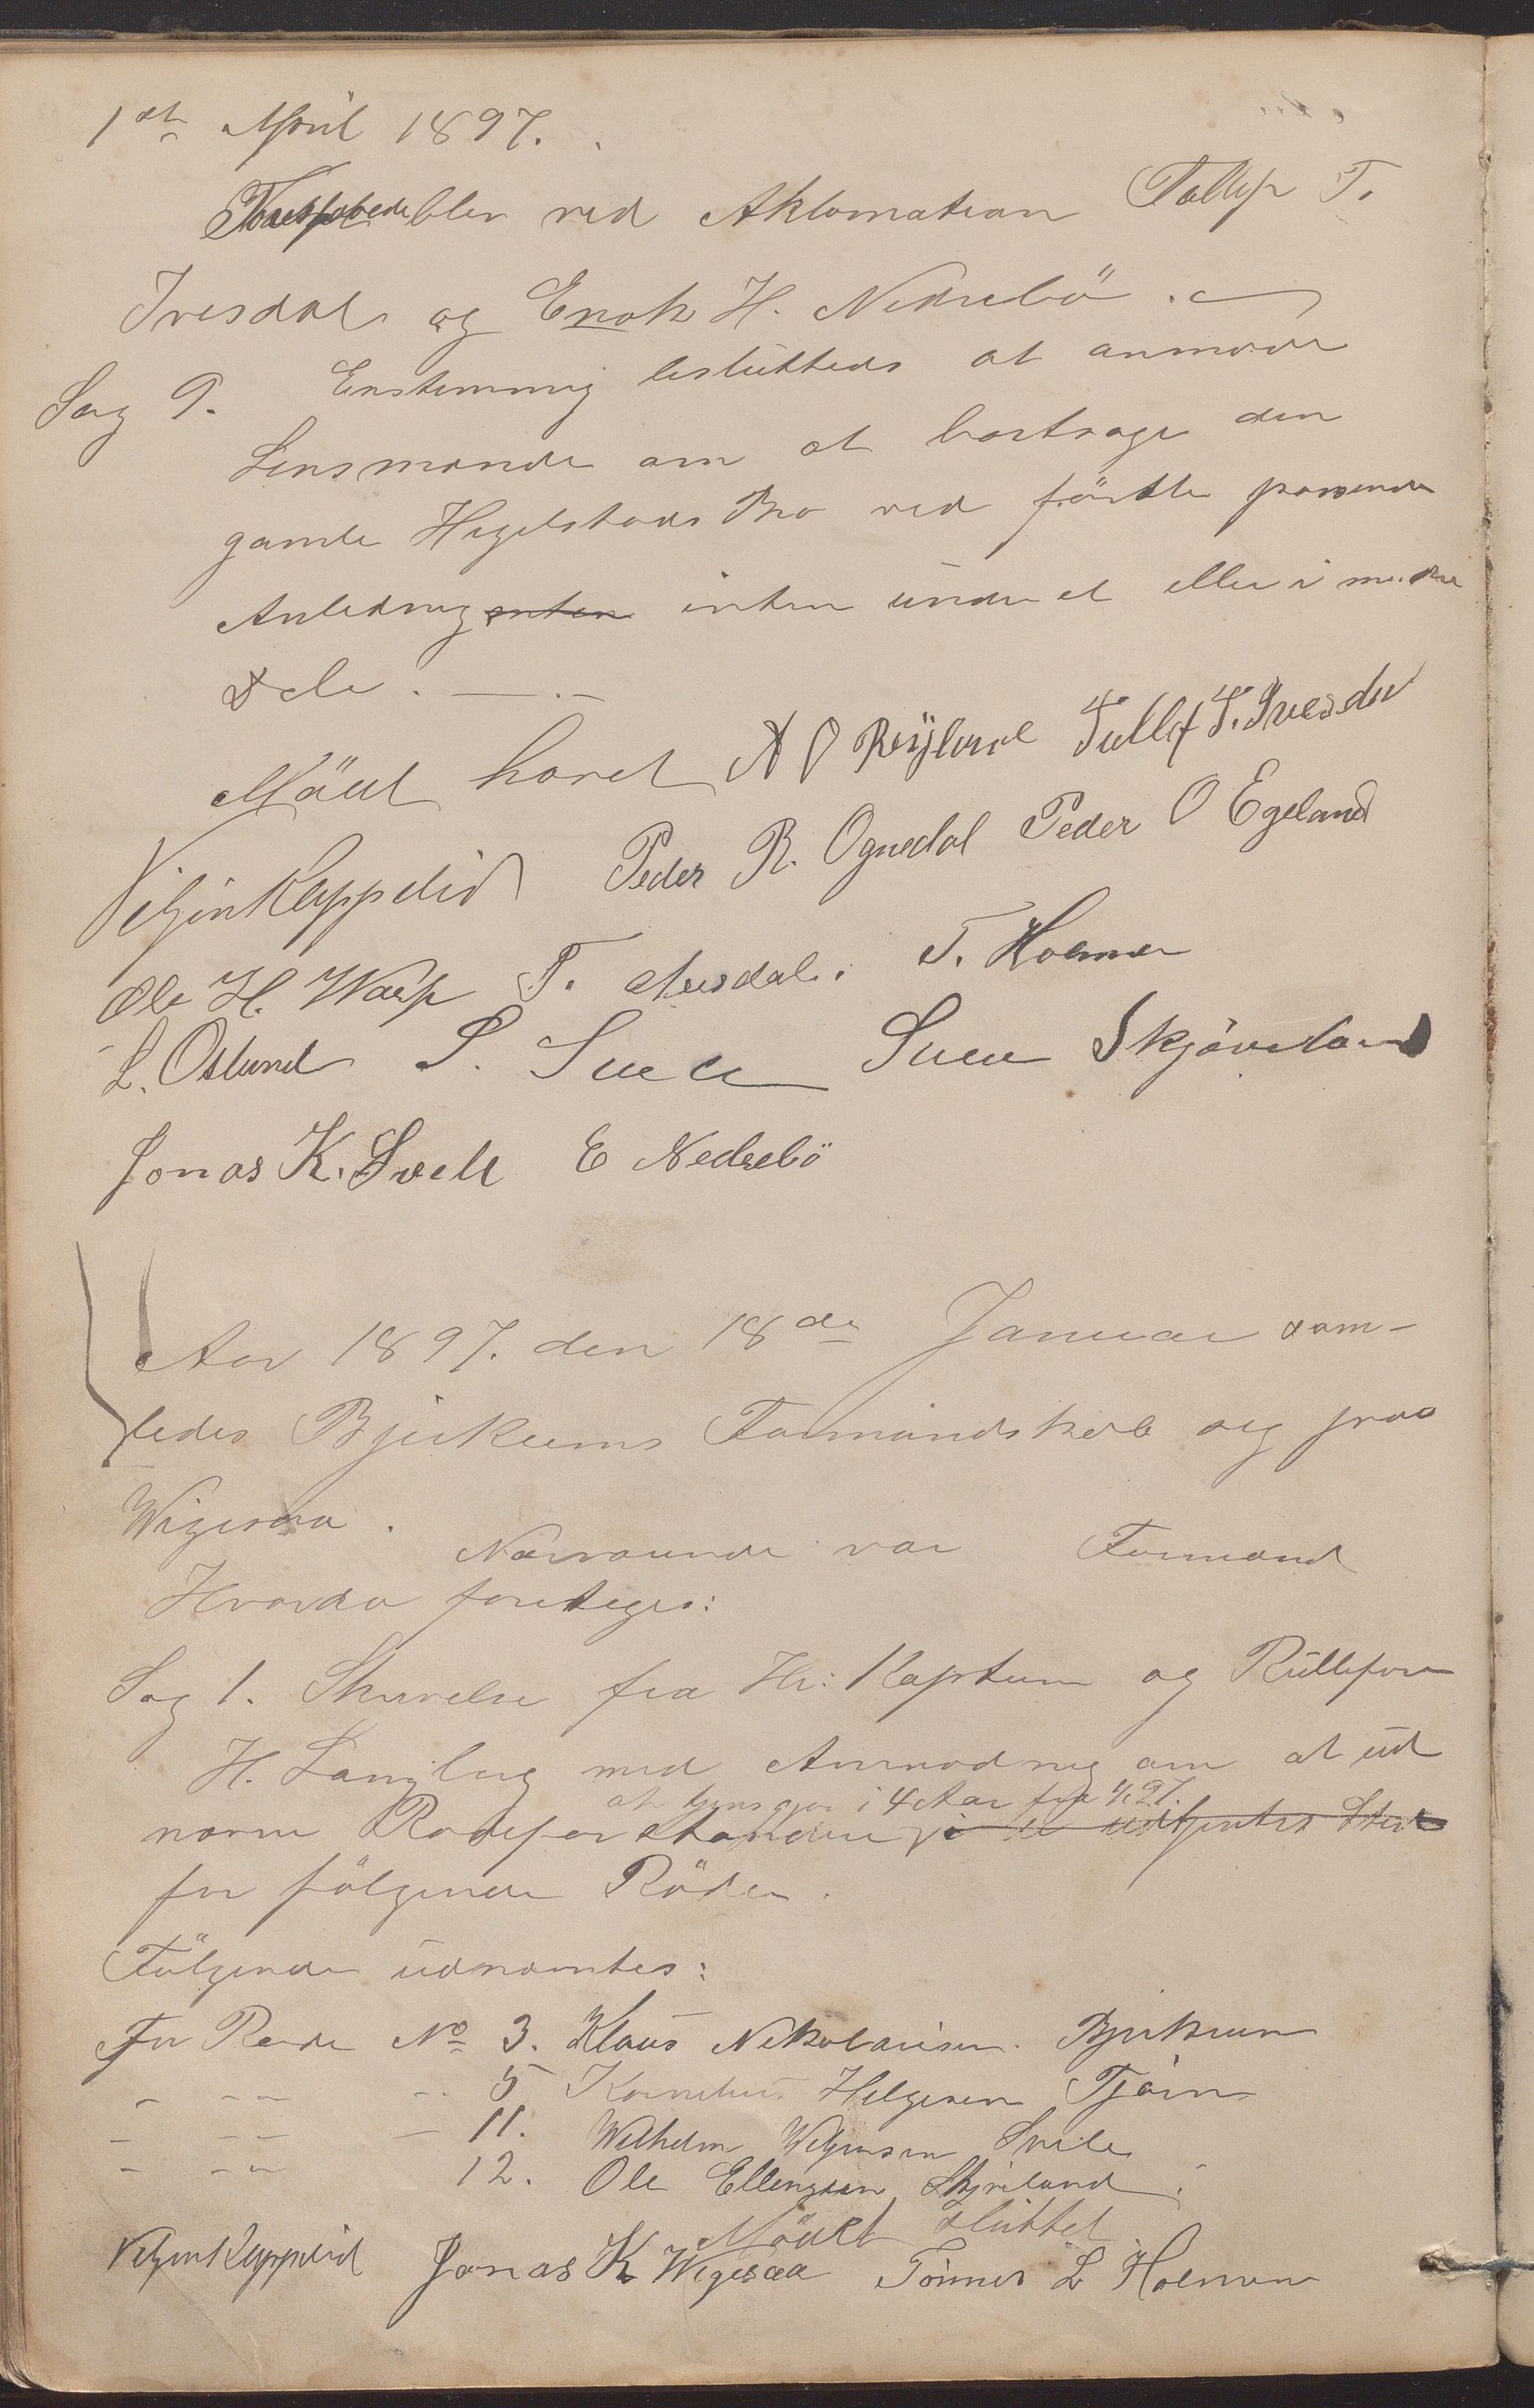 1ste April 1897.
blev ved Aklomation Tollef T.
Ivesdal og Enok H. Nedrebö.
Sag 9. Enstemmig besluttedes at anmode
Lensmanden om at bortsage den
gamle Hegelstads Bro ved förstk passende
Anledning enten enten under et eller i mindre
dele.
Mödet hævet A O Röyland Tollef T. Ivesdal
Vilhelm Kleppelid Peder R. Ognedal Peder O Egeland
Ole H. Waȩp T. Austdal. T. Holmen
L. Östund S. Svela Sven Skjæveland
Jonas K. Svele E Nedrebö
Aar 1897. den 18de Januar sam-
ledes Bjerkreims Formandskab sig paa
Wigesaa.
Nærværende var Formand
Hvorda foretoges:
Sag 1. Skrivelse fra Hr: Kaptein og Rullefører
H. Langberg med Anmodning om at ud
at tjensgjøre i 4 Aar fra 1/1 97.
nævne Rodeforstandere i de udtjentes Sted
for fölgende Röder.
Fölgende udnævntes:
For Rode No 3. Klaus Nikolaisen. Bjerkreim
- - - - 5 Kornelius Helgesen Tjörn
- - - - 11. Wilhelm Wilhelmsen Svele
- - - 12. Ole Ellingsen Skjæveland.
Mödet sluttet
Vilhelm Kleppelid Jonas K Wigesaa Tönnes L Holmen